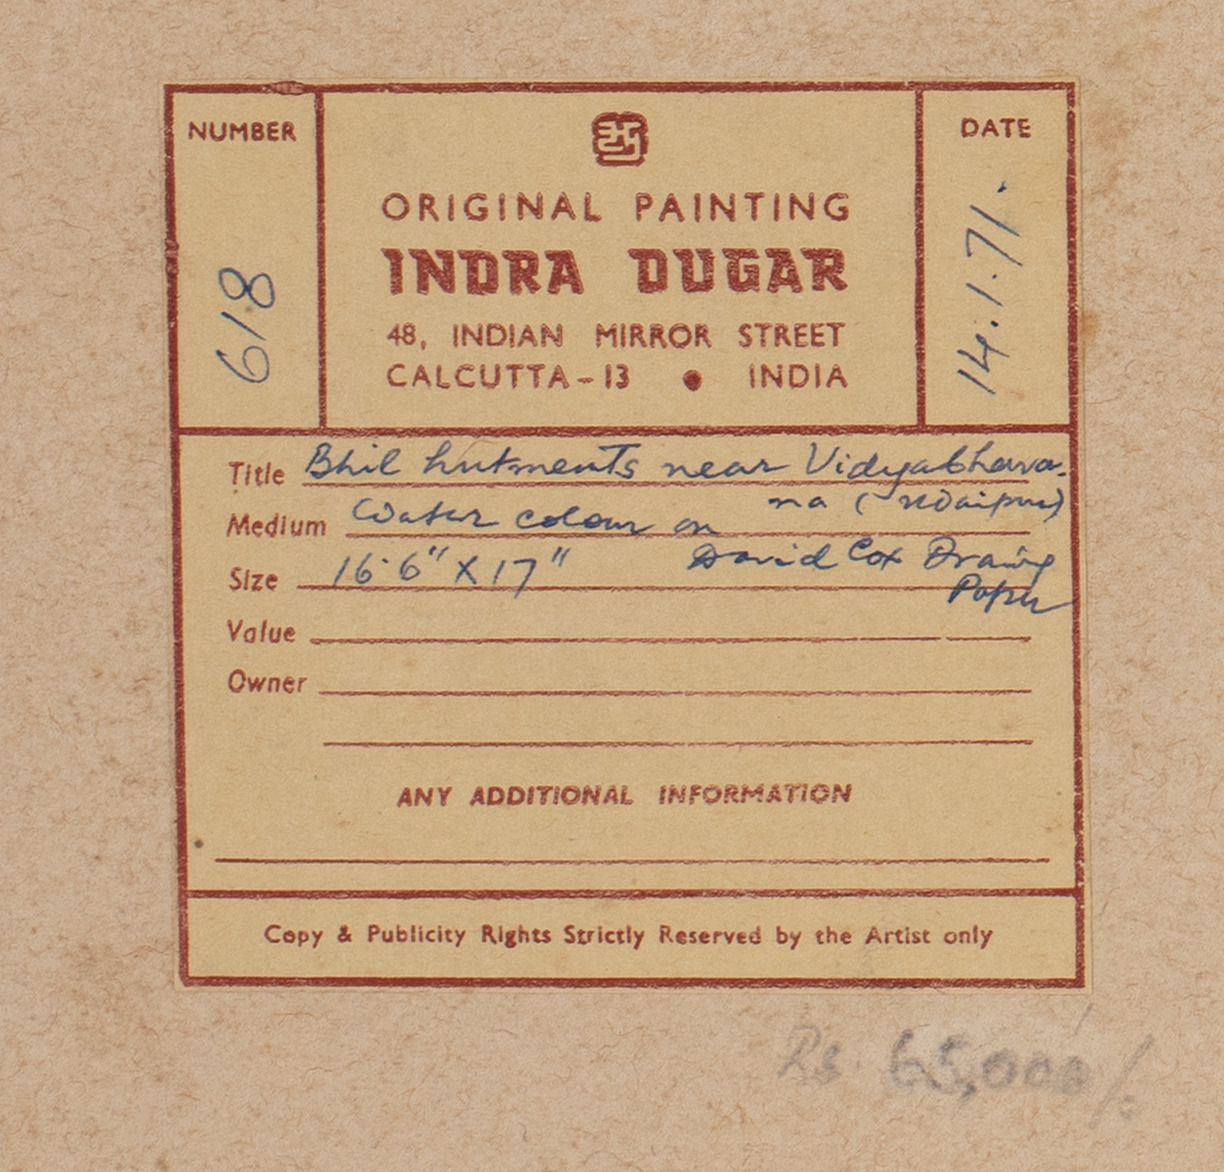 NUMBER
618
ORIGINAL PAINTING
INDRA DUGAR
48, INDIAN MIRROR STREET
CALCUTTA-13 • INDIA
DATE
14.1.71.
Title Bhil hutments near Vidyabhava-
na (Udaipur)
Medium Water colour on
David Cox Drawing
Paper
Size 16.6" X 17"
Value
Owner
ANY ADDITIONAL INFORMATION
Copy & Publicity Rights Strictly Reserved by the Artist only
Rs. 65,000/-